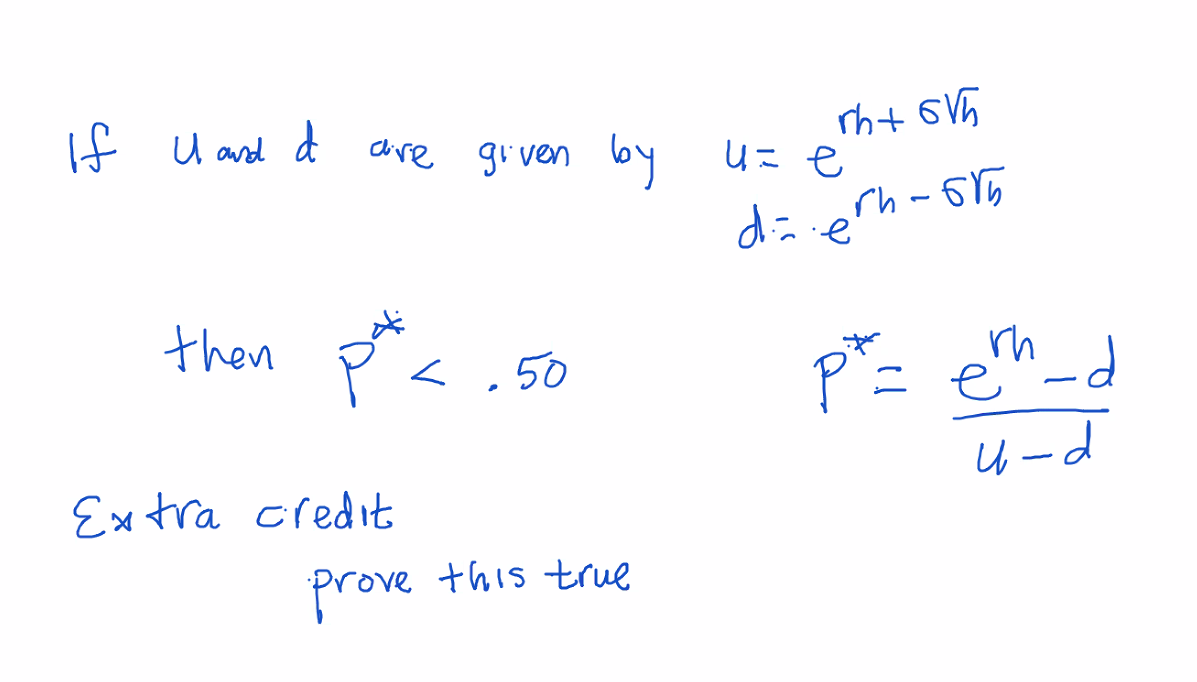 If u and d are given by u = e^{rh + σ√h}
d = e^{rh - σ√h}
then p* < .50 p* = \frac{e^{rh} - d}{u - d}
Extra credit
prove this true